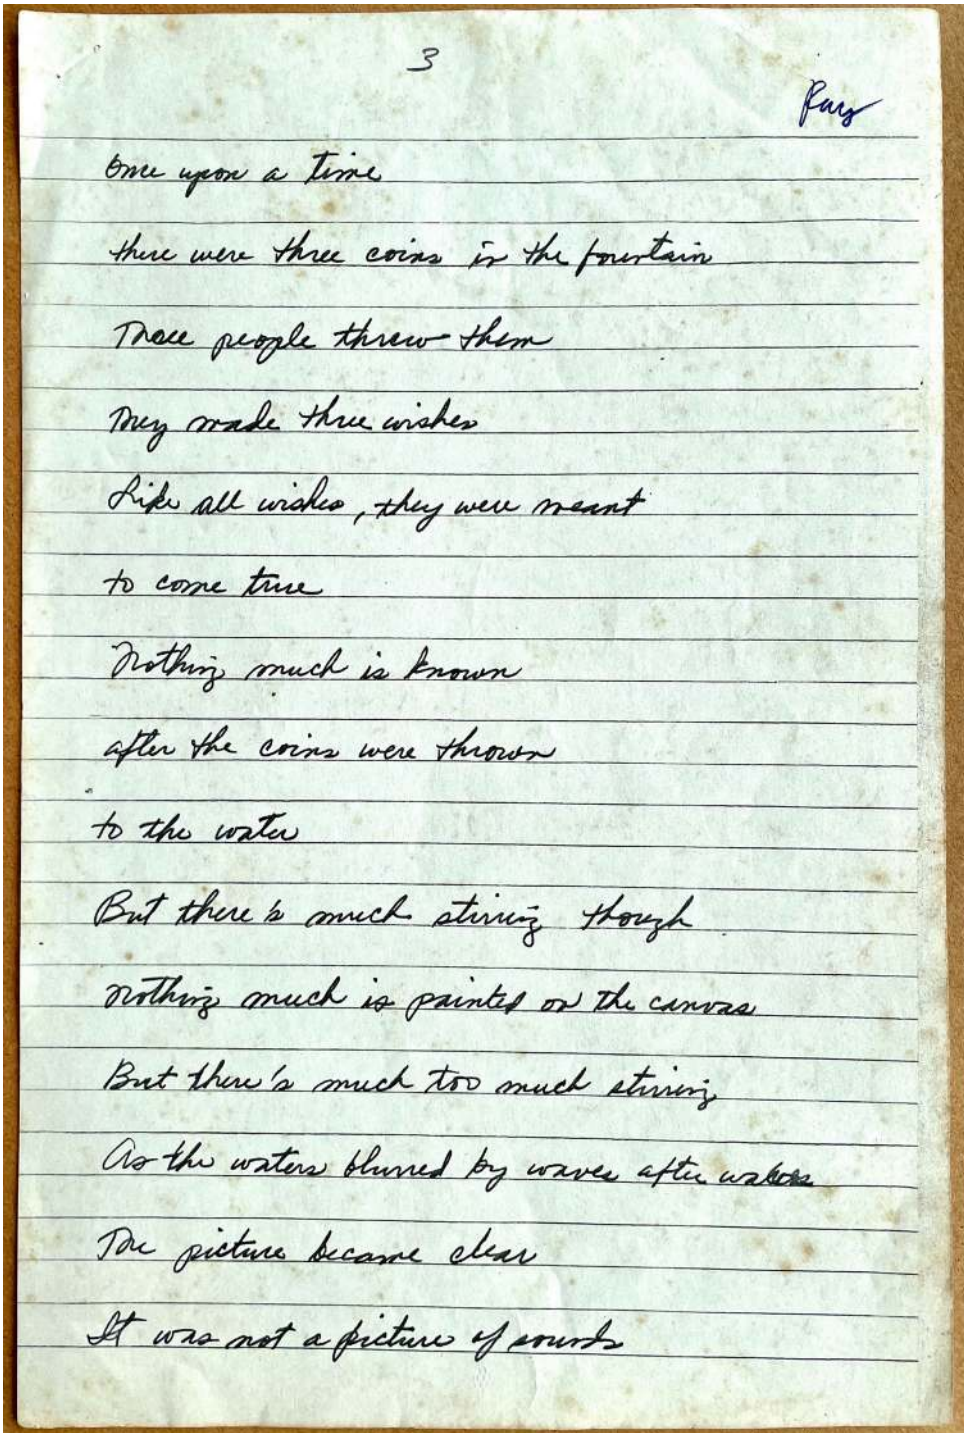 3
Once upon a time
there were three coins in the fountain
Three people threw them
They made three wishes
Like all wishes, they were meant
to come true
Nothing much is known
after the coins were thrown
to the water
But there's much stirring though
Nothing much is painted on the canvas
But there's much too much stirring
As the waters blurred by waves after waves
The picture became clear
It was not a picture of sounds